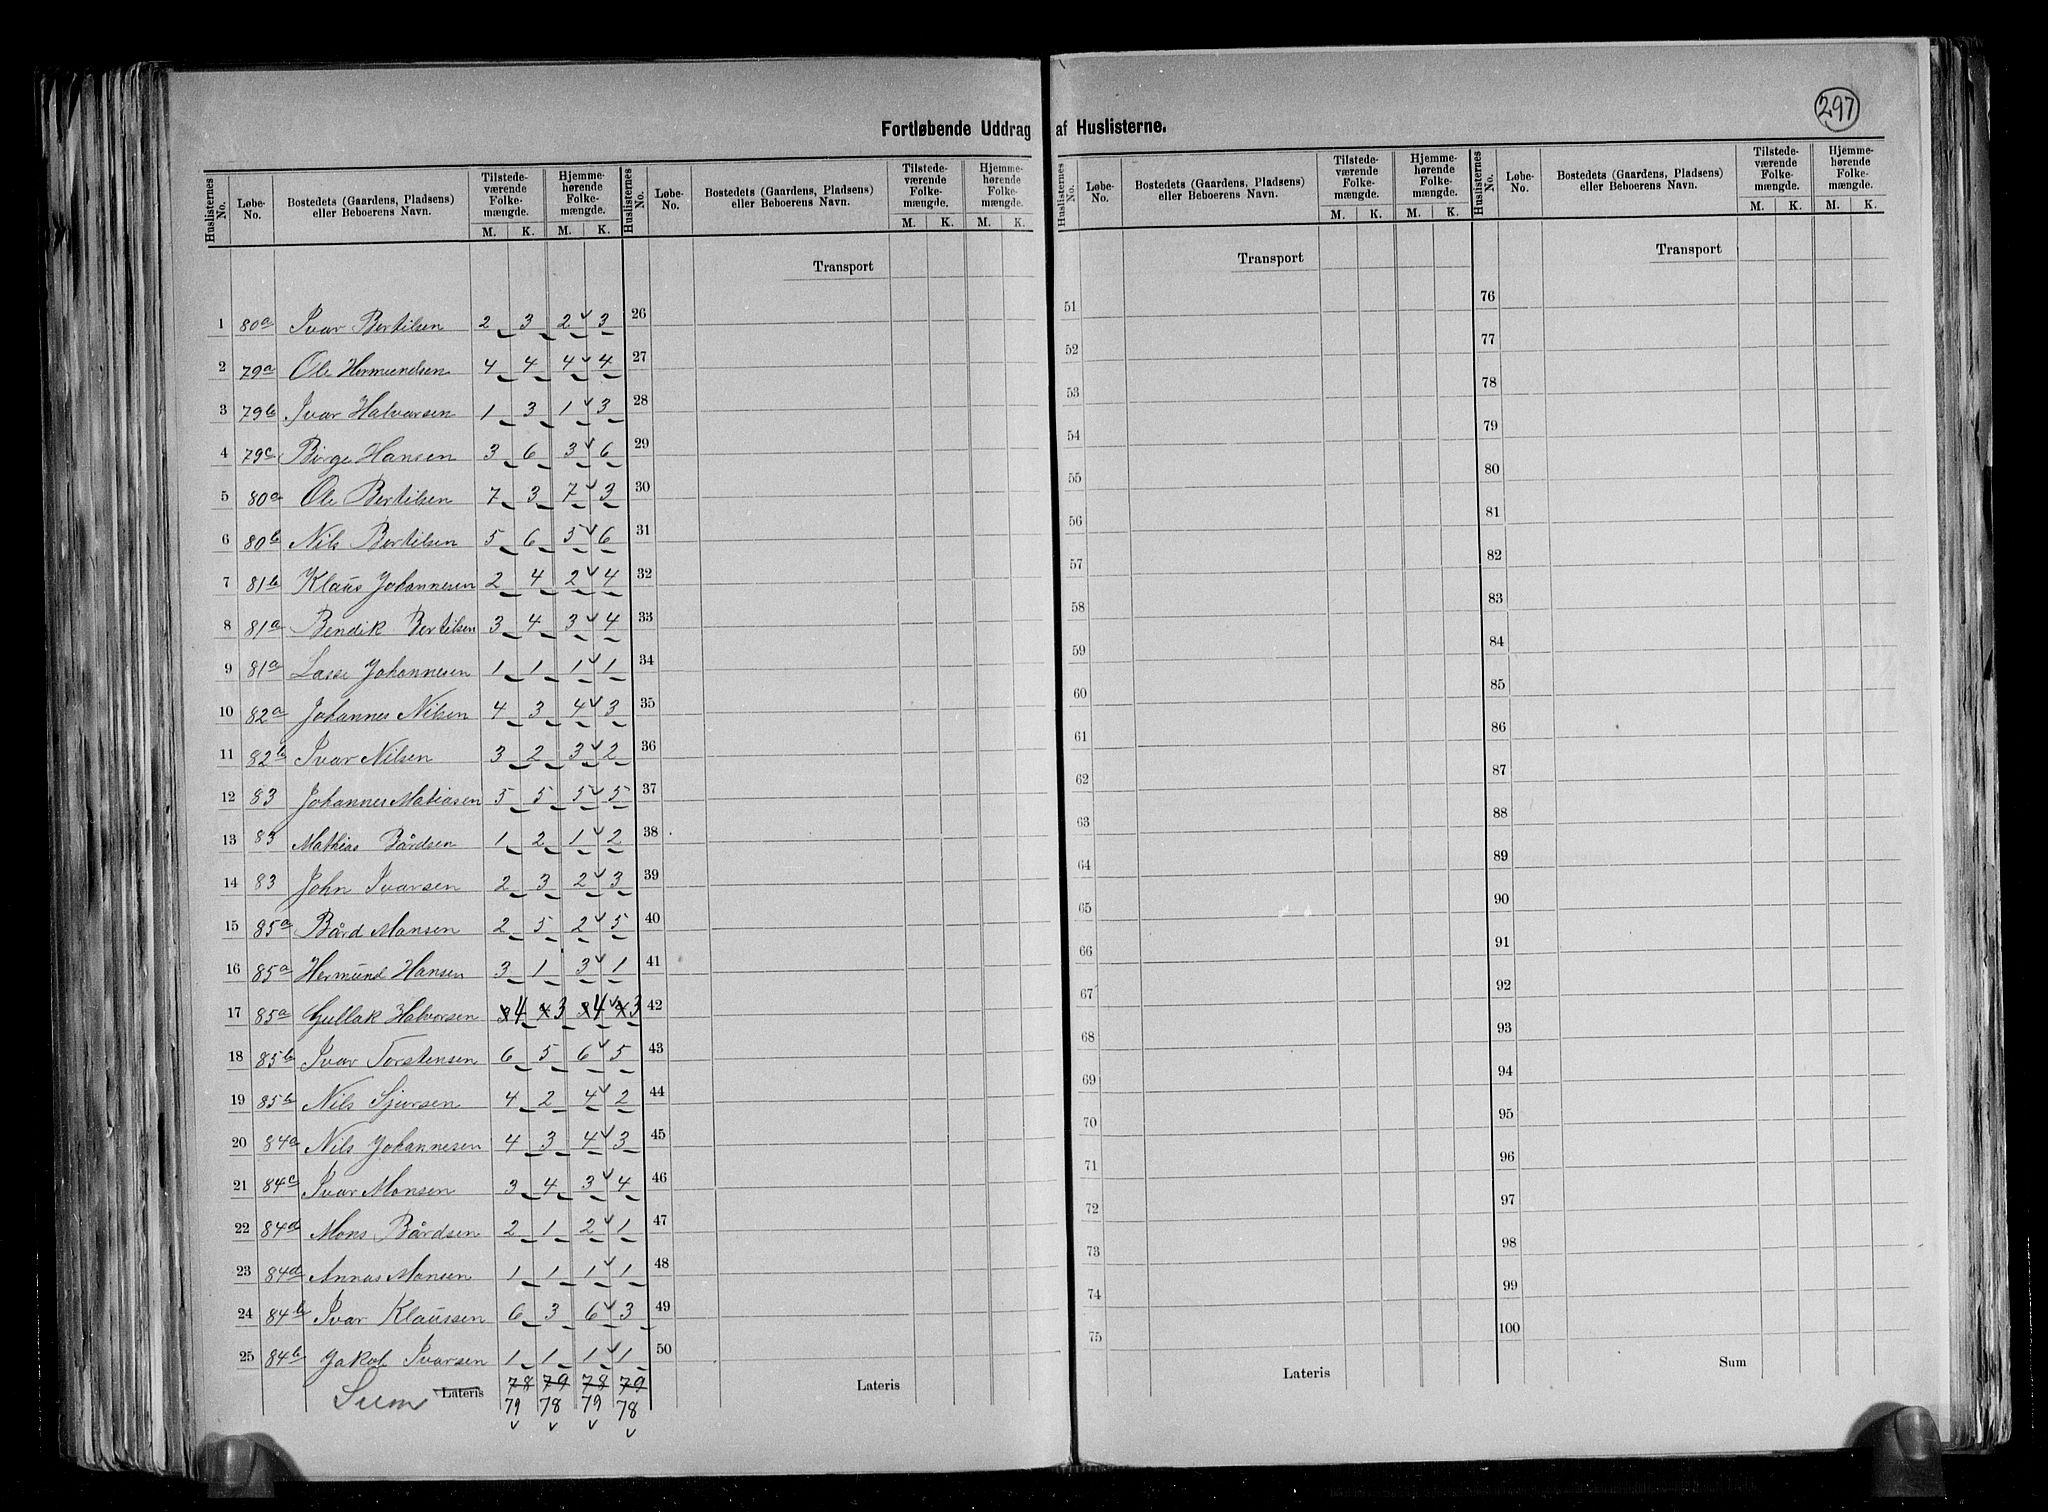 297
Fortløbende Uddrag af Huslisterne.
Huslisternes No. | Løbe-No. | Bostedets (Gaardens, Pladsens) eller Beboerens Navn. | Tilstedeværende Folkemængde. M. K. | Hjemmehørende Folkemængde. M. K.
1 80a Ivar Bertilsen 2 3 2 3
2 79a Ole Hermundsen 4 4 4 4
3 79b Ivar Halvorsen 1 3 1 3
4 79c Børge Hansen 3 6 3 6
5 80a Ole Bertilsen 7 3 7 3
6 80b Nils Bertilsen 5 6 5 6
7 81b Klaus Johannesen 2 4 2 4
8 81a Bendik Bertilsen 3 4 3 4
9 81a Lasse Johannesen 1 1 1 1
10 82a Johannes Nilsen 4 3 4 3
11 82b Ivar Nilsen 3 2 3 2
12 83 Johannes Matiasen 5 5 5 5
13 83 Mathias Bårdsen 1 2 1 2
14 83 John Ivarsen 2 3 2 3
15 85a Bård Monsen 2 5 2 5
16 85a Hermund Hansen 3 1 3 1
17 85a Gullak Halvorsen 4 3 4 3
18 85b Ivar Torstensen 6 5 6 5
19 85b Nils Sjursen 4 2 4 2
20 84a Nils Johannesen 4 3 4 3
21 84c Ivar Monsen 3 4 3 4
22 84d Mons Bårdsen 2 1 2 1
23 84d Annas Monsen 1 1 1 1
24 84b Ivar Klaussen 6 3 6 3
25 84b Jakob Ivarsen 1 1 1 1
Sum Lateris 78 79 78 79
79 78 79 78
Huslisternes No. | Løbe-No. | Bostedets (Gaardens, Pladsens) eller Beboerens Navn. | Tilstedeværende Folkemængde. M. K. | Hjemmehørende Folkemængde. M. K.
Transport
26
27
28
29
30
31
32
33
34
35
36
37
38
39
40
41
42
43
44
45
46
47
48
49
50
Lateris
Huslisternes No. | Løbe-No. | Bostedets (Gaardens, Pladsens) eller Beboerens Navn. | Tilstedeværende Folkemængde. M. K. | Hjemmehørende Folkemængde. M. K.
Transport
51
52
53
54
55
56
57
58
59
60
61
62
63
64
65
66
67
68
69
70
71
72
73
74
75
Lateris
Huslisternes No. | Løbe-No. | Bostedets (Gaardens, Pladsens) eller Beboerens Navn. | Tilstedeværende Folkemængde. M. K. | Hjemmehørende Folkemængde. M. K.
Transport
76
77
78
79
80
81
82
83
84
85
86
87
88
89
90
91
92
93
94
95
96
97
98
99
100
Sum